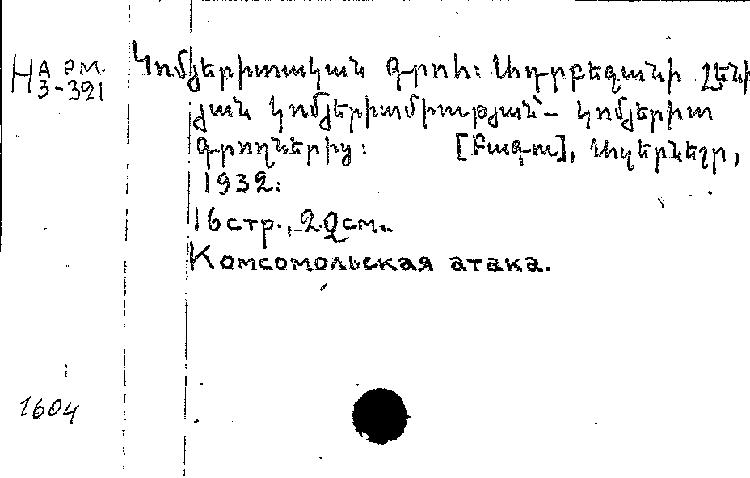 На арм.
3-321
Կոմյերիտական գրոհ: Ադրբեջանի Լենի
յան կոմյերիտմիության՝ - կոմյերիտ
գրողներից: [Բագու], Ազերնեշր,
1932:
16 стр., 20 см.
Комсомольская атака.
1604